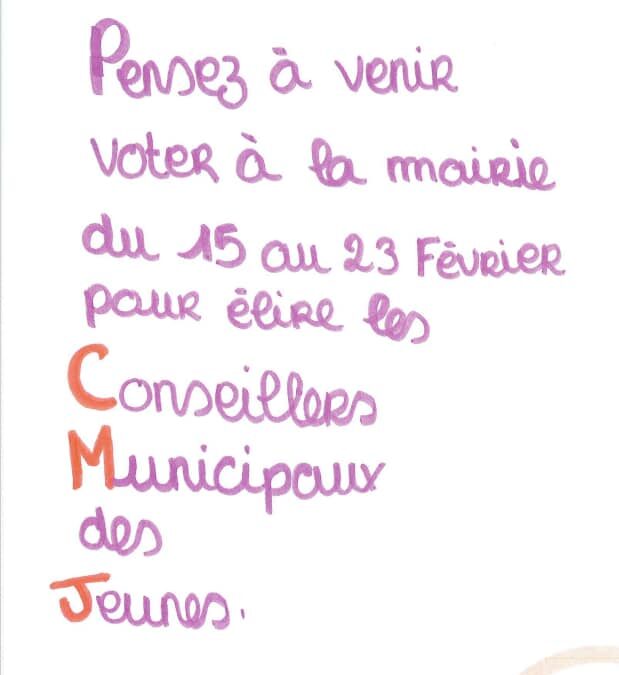 Pensez à venir
voter à la mairie
du 15 au 23 Février
pour élire les
Conseillers
Municipaux
des
Jeunes.